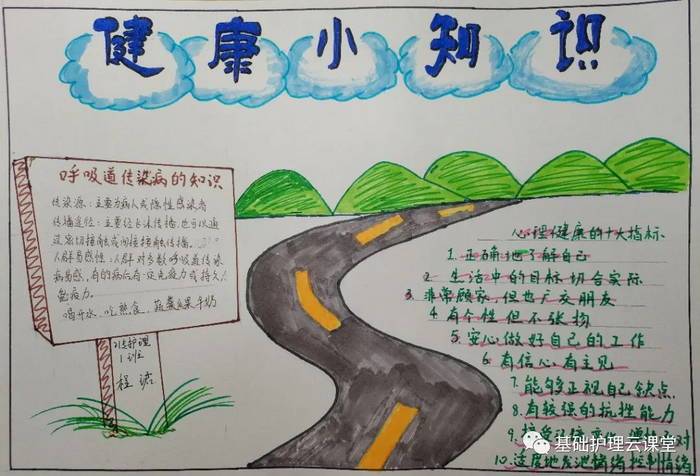 健康小知识
呼吸道传染病的知识
传染源：主要为病人或隐性感染者
传播途径：主要经飞沫传播，也可以通
过密切接触或间接接触传播。
人群易感性：人群对多数呼吸道传染
病易感，有的病后有一定免疫力或持久
免疫力。
喝开水、吃熟食、蔬菜水果牛奶
护理
1班
程
心理健康的十大指标
1.正确地了解自己
2.生活中的目标切合实际
3.非常顾家，但也广交朋友
4.有个性但不张扬
5.安心做好自己的工作
6.有信心有主见
7.能够正视自己缺点
8.有较强的抗挫能力
9.
10.适度地发泄情绪控制情绪
基础护理云课堂